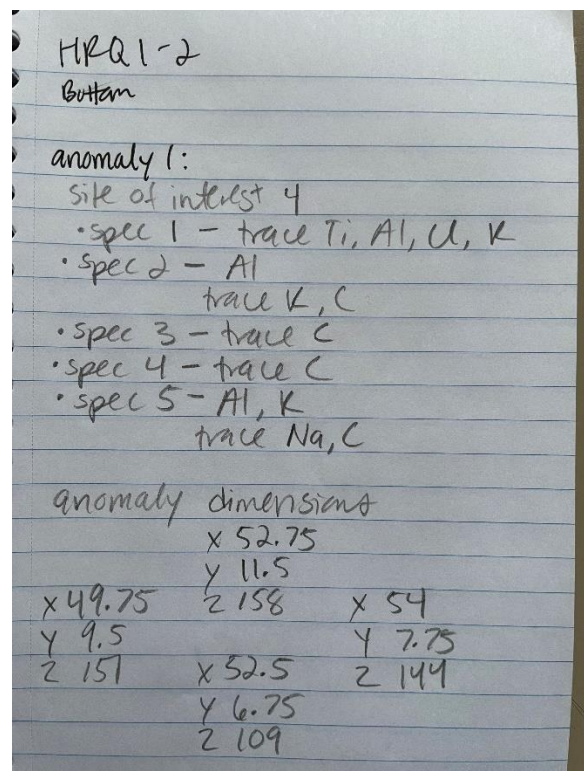 HRQ1-2
Bottom
anomaly 1:
site of interest 4
• spec 1 - trace Ti, Al, Cl, K
• spec 2 - Al
trace K, C
• spec 3 - trace C
• spec 4 - trace C
• spec 5 - Al, K
trace Na, C
anomaly dimensions
x 52.75
y 11.5
z 158
x 49.75
y 9.5
z 151
x 54
y 7.75
z 144
x 52.5
y 6.75
z 109